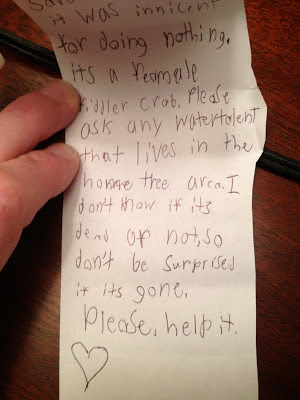 it was innicent
for doing nothing.
its a Feamale
fiddler crab. Please
ask any watertalent
that lives in the
home tree area. I
don't know if its
dead or not, so
don't be surprised
if its gone.
Please, help it.